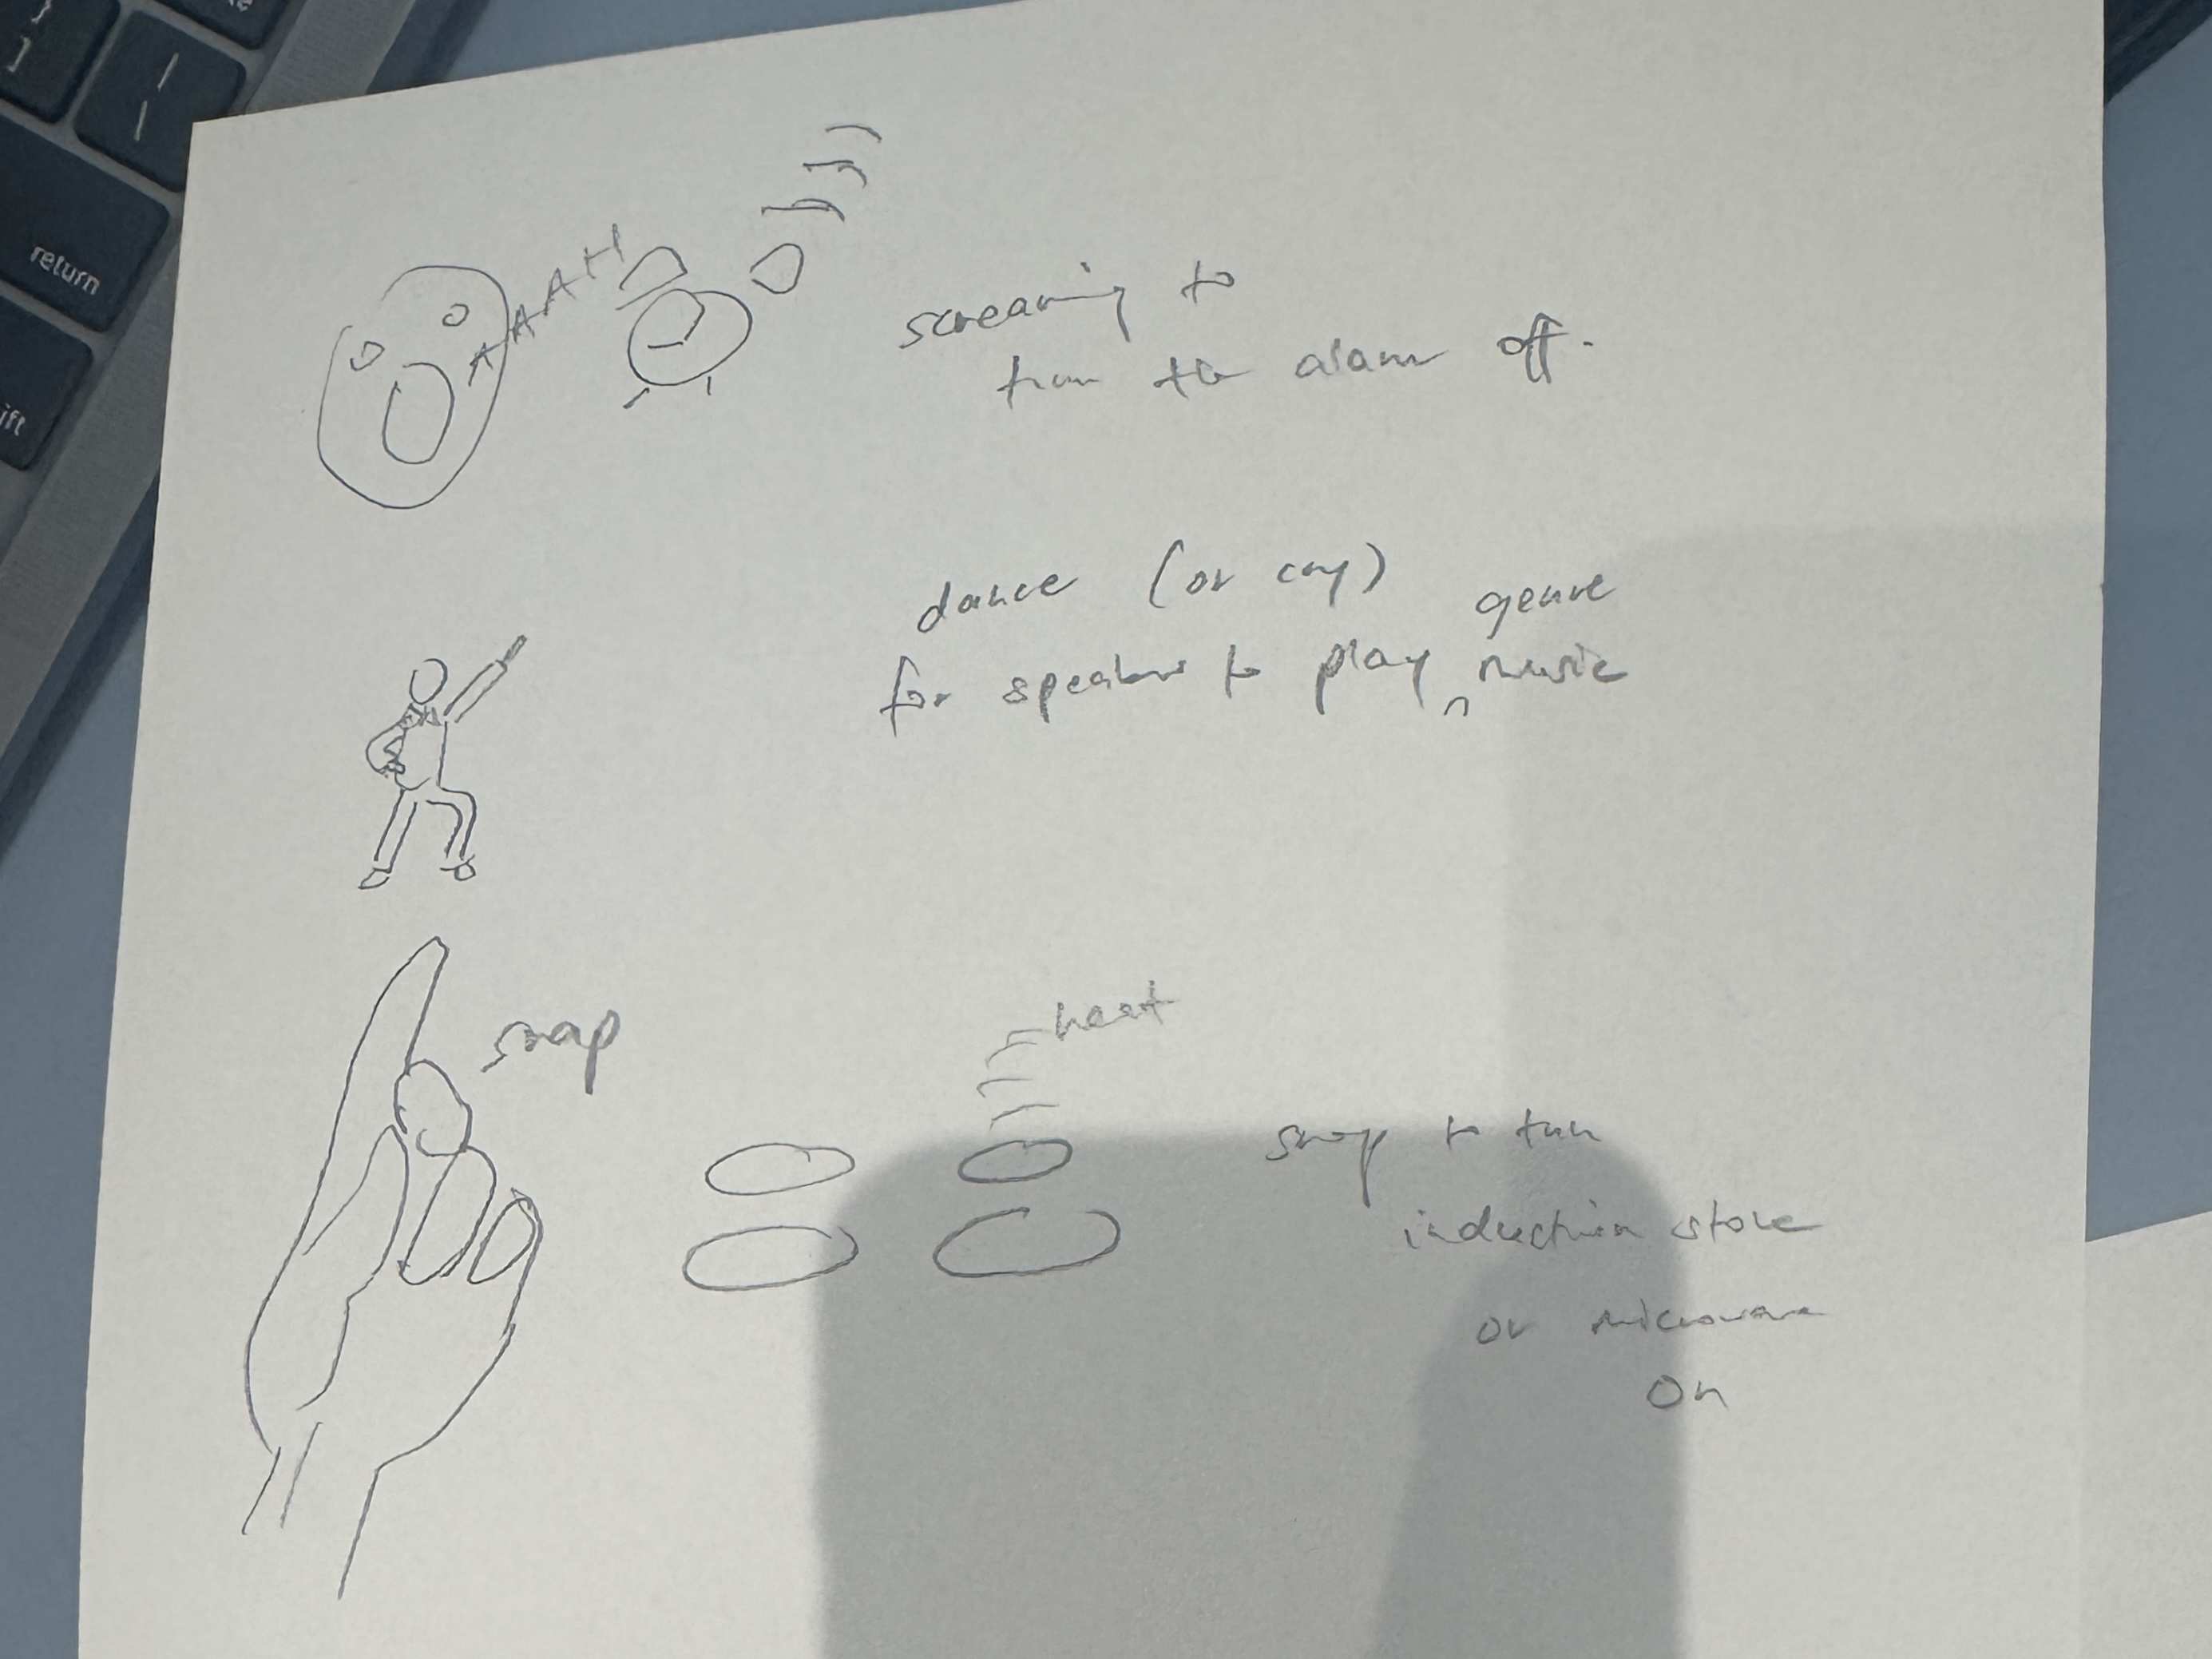 }
]
|
\
return
ift
AAAAH
screaming to
turn the alarm off.
dance (or cry) genre
for speaker to play ^ music
snap
heat
snap to turn
induction stove
or microwave
on